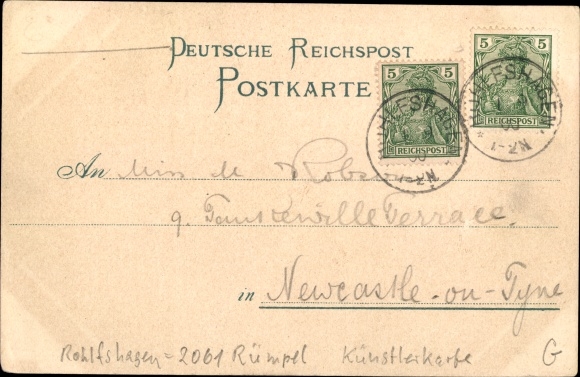 DEUTSCHE REICHSPOST
POSTKARTE
5 5
REICHSPOST
5 5
REICHSPOST
An Miss M Robson
9. Tankerville Terrace.
in Newcastle-on-Tyne
Rohlfshagen = 2061 Rümpel Künstlerkarte G